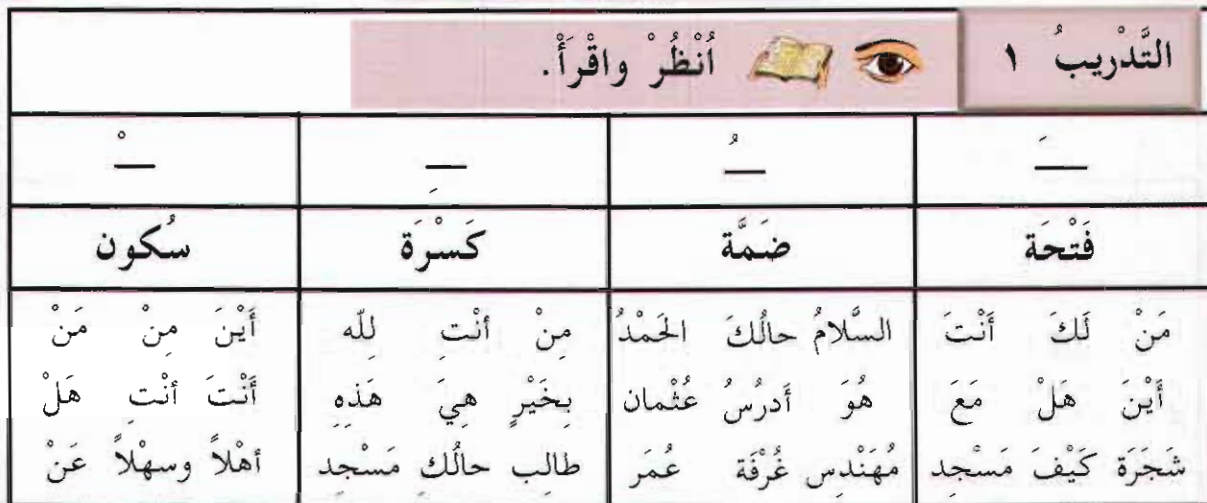 التَّدْريبُ ١ اُنْظُرْ واقْرَأْ.
ـَ ـُ ـِ ـْ
فَتْحَة ضَمَّة كَسْرَة سُكون
مَنْ لَكَ أَنْتَ السَّلامُ حالُكَ الحَمْدُ مِنْ أنْتِ لِلّه أَيْنَ مِنْ مَنْ
أَيْنَ هَلْ مَعَ هُوَ أَدرُسُ عُثْمان بِخَيْرٍ هِيَ هَذِهِ أَنْتَ أنْتِ هَلْ
شَجَرَة كَيْفَ مَسْجِد مُهَنْدِس غُرْفَة عُمَر طالِب حالُكِ مَسْجِد أهْلاً وسهْلاً عَنْ